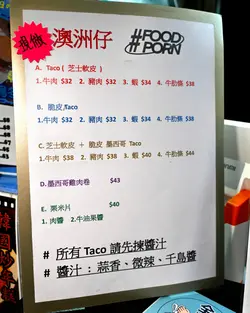 我做 澳洲仔 #FOOD PORN
A. Taco ( 芝士軟皮 )
1.牛肉 $32 2.豬肉 $32 3.蝦 $34 4.牛肋條 $38
B. 脆皮,Taco
1.牛肉 $32 2.豬肉 $32 3.蝦 $34 4.牛肋條 $38
C.芝士軟皮 + 脆皮 墨西哥 Taco
1.牛肉 $38 2.豬肉 $38 3.蝦 $40 4.牛肋條 $44
D.墨西哥雞肉卷 $43
E. 粟米片 $40
1. 肉醬 2.牛油果醬
# 所有 Taco 請先揀醬汁
# 醬汁 : 蒜香、微辣、千島醬
韓國